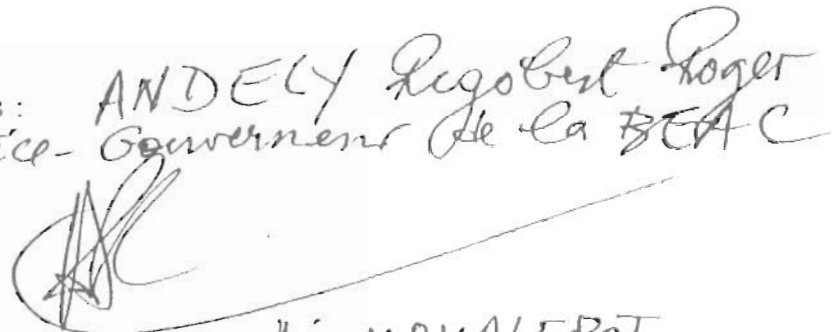 s: ANDELY Rigobert Roger
ice-Gouverneur de la BEAC